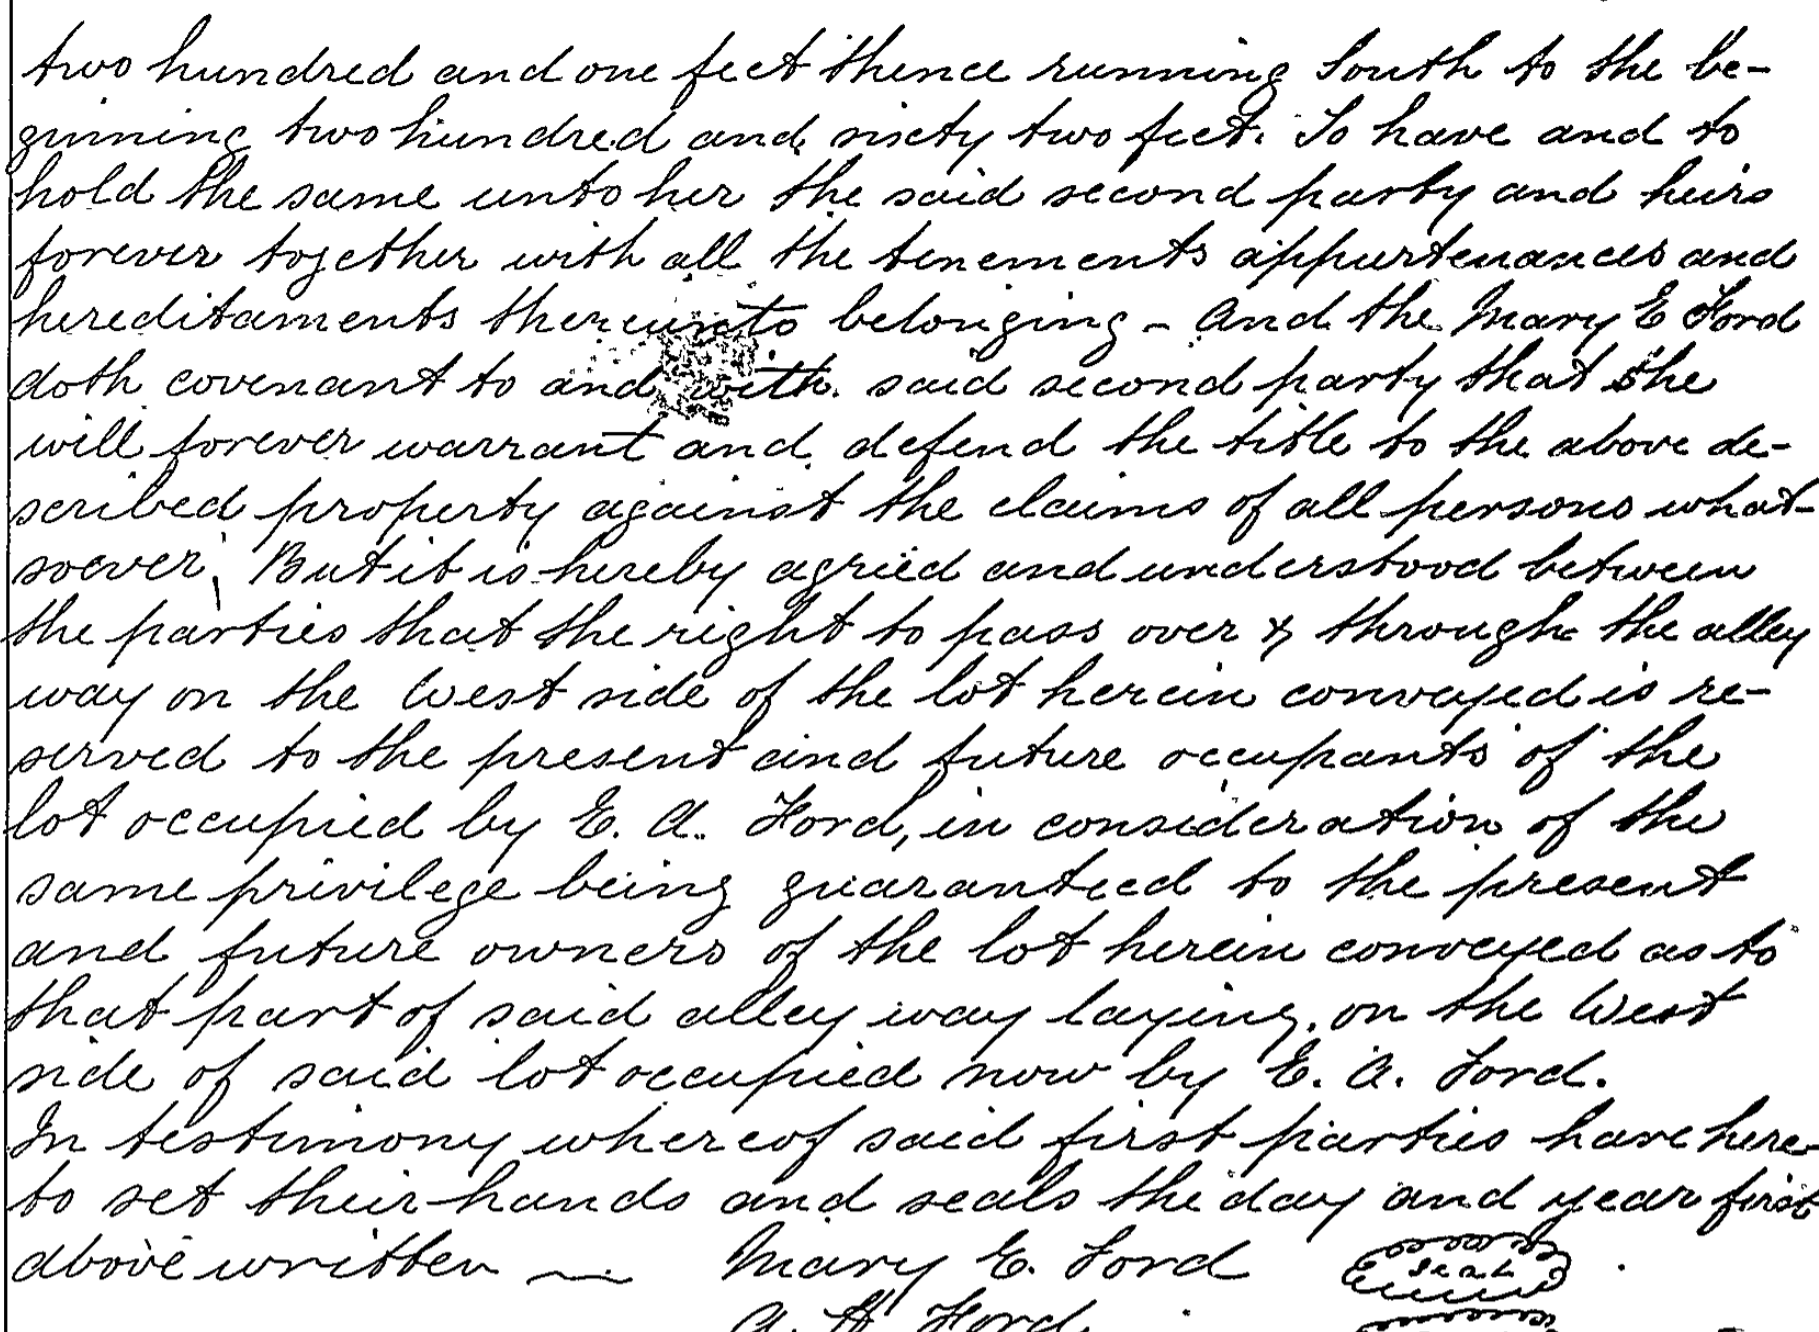 two hundred and one feet thence running South to the be-
ginning two hundred and sixty two feet. To have and to
hold the same unto her the said second party and heirs
forever together with all the tenements appurtenances and
hereditaments thereunto belonging - And the Mary E Ford
doth covenant to and with said second party that she
will forever warrant and defend the title to the above de-
scribed property against the claims of all persons what-
soever, But it is hereby agreed and understood between
the parties that the right to pass over & through the alley
way on the West side of the lot herein conveyed is re-
served to the present and future occupants of the
lot occupied by E. A. Ford, in consideration of the
same privilege being guaranteed to the present
and future owners of the lot herein conveyed as to
that part of said alley way laying, on the West
side of said lot occupied now by E. A. Ford.
In testimony whereof said first parties have here-
to set their hands and seals the day and year first
above written — Mary E. Ford Seal
A. H. Ford